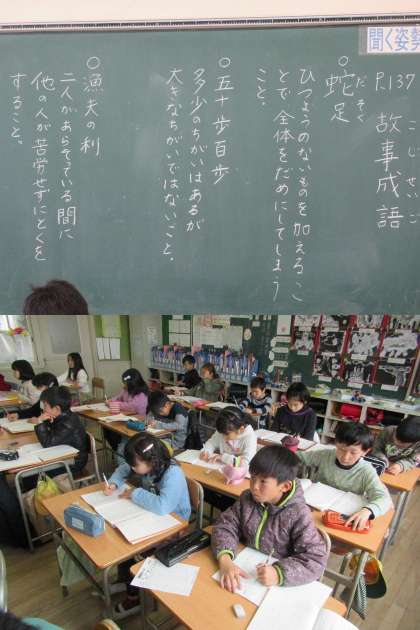 聞く姿勢
P.137 故事成語
こじせいご
○蛇足
だそく
ひつようのないものを加えるこ
とで全体をだめにしてしまう
こと。
○五十歩百歩
多少のちがいはあるが
大きなちがいではないこと。
○漁夫の利
二人があらそっている間に
他の人が苦労せずにとくを
すること。